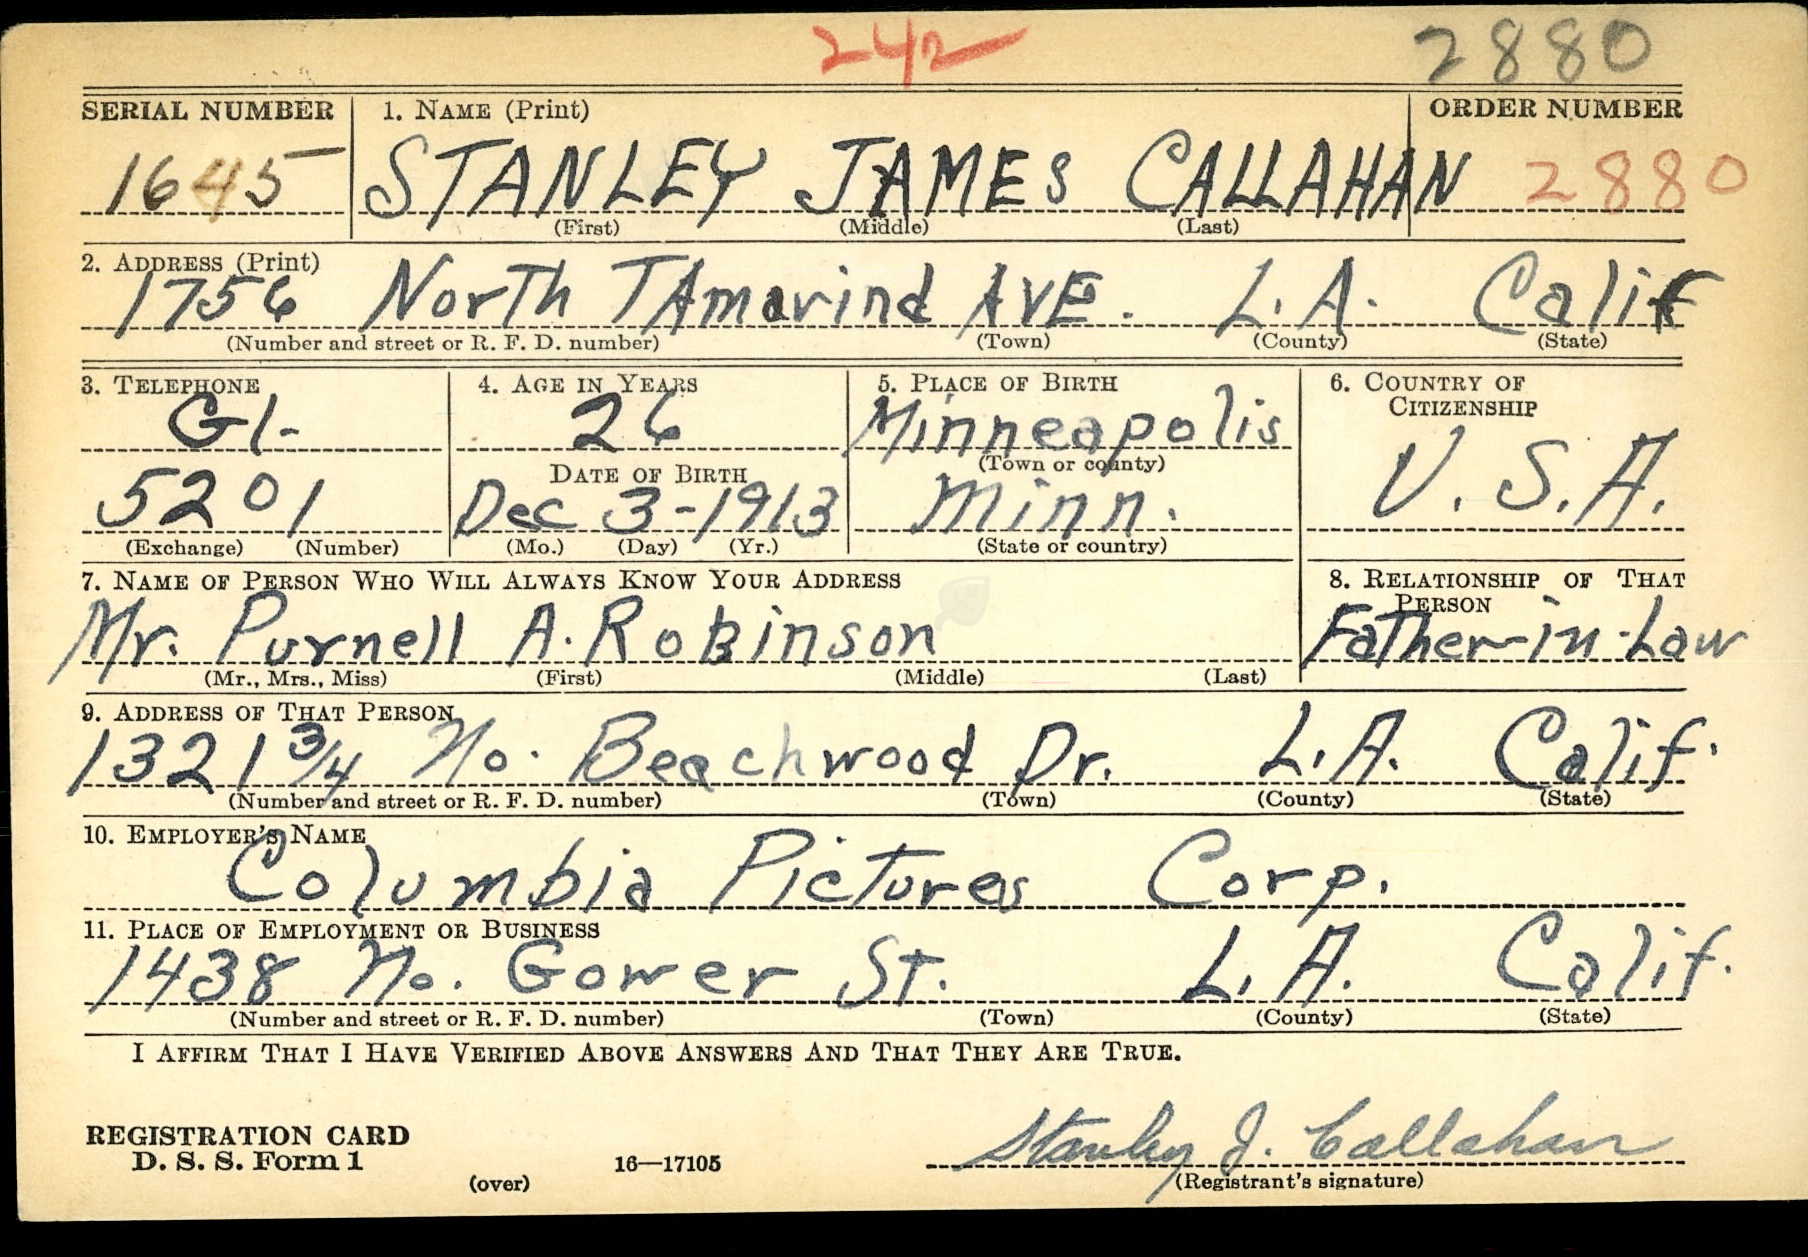 242 2880
SERIAL NUMBER 1. NAME (Print) ORDER NUMBER
1645 STANLEY JAMES CALLAHAN 2880
(First) (Middle) (Last)
2. ADDRESS (Print)
1756 North TAmarind AVE. L.A. Calif
(Number and street or R. F. D. number) (Town) (County) (State)
3. TELEPHONE 4. AGE IN YEARS 5. PLACE OF BIRTH 6. COUNTRY OF
CITIZENSHIP
Gl- 26 Minneapolis
DATE OF BIRTH (Town or county)
5201 Dec 3-1913 Minn. U.S.A.
(Exchange) (Number) (Mo.) (Day) (Yr.) (State or country)
7. NAME OF PERSON WHO WILL ALWAYS KNOW YOUR ADDRESS 8. RELATIONSHIP OF THAT
PERSON
Mr. Purnell A. RoBinson Father-in-Law
(Mr., Mrs., Miss) (First) (Middle) (Last)
9. ADDRESS OF THAT PERSON
1321 3/4 No. Beachwood Dr. L.A. Calif.
(Number and street or R. F. D. number) (Town) (County) (State)
10. EMPLOYER'S NAME
Columbia Pictures Corp.
11. PLACE OF EMPLOYMENT OR BUSINESS
1438 No. Gower St. L.A. Calif.
(Number and street or R. F. D. number) (Town) (County) (State)
I AFFIRM THAT I HAVE VERIFIED ABOVE ANSWERS AND THAT THEY ARE TRUE.
REGISTRATION CARD
D. S. S. Form 1 16—17105 Stanley J. Callahan
(over) (Registrant's signature)